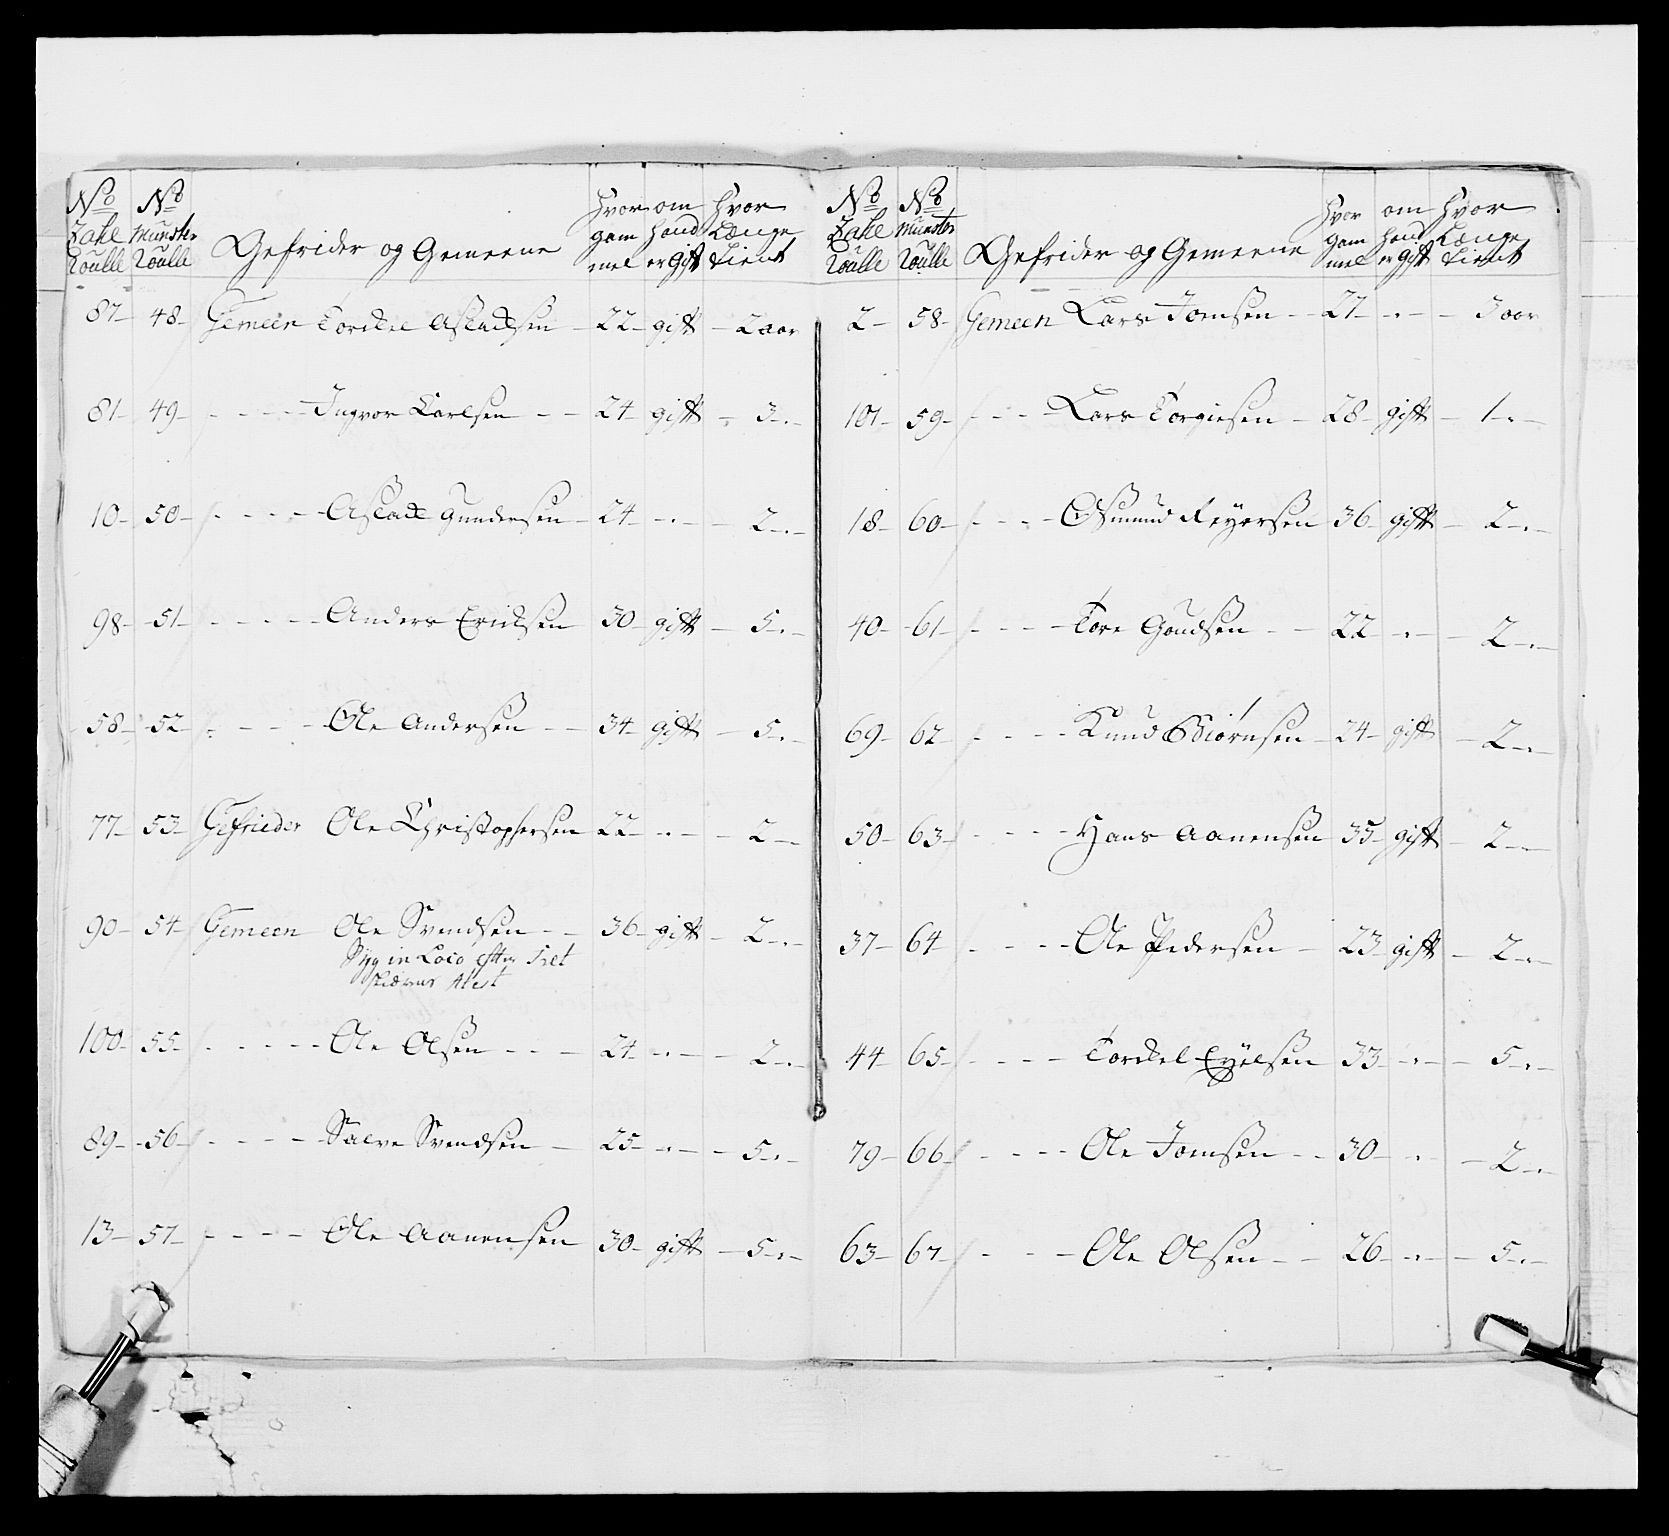 No Zahl Roulle | No Munster Roulle | Gefrider og Gemeene | Hvor gam mel | om hand er Gift | Hvor Længe tient
87 48 Gemeen Torckel Aslacksen 22 gift 2 aar
81 49 - - - - Ingvor Carlsen - - 24 gift 3 -.-
10 50 - - - - Aslack Gundersen 24 -.- 2 -.-
98 51 - - - - Anders Ericksen 30 gift 5 -.-
58 52 - - - - Ole Andersen - - 34 gift 5 -.-
77 53 Gefrieder Ole Christophersen 22 -.- 2 -.-
90 54 Gemeen Ole Svendsen - - 36 gift 2 -.-
Syg in Loco efter
Atest
100 55 - - - - Ole Olsen - - - 24 -.- 2 -.-
89 56 - - - - Salve Svendsen - 25 -.- 5 -.-
13 57 - - - - Ole Aanensen 30 gift 5 -.-
No Zahl Roulle | No Munster Roulle | Gefrider og Gemeene | Hvor gam mel | om hand er Gift | Hvor Længe tient
2 58 Gemeen Lars Jomsen - - 27 -.- 3 aar
101 59 - - - Lars Torgiesen - 28 gift 1 -.-
18 60 - - - - Osmund Reyersen 36 gift 2 -.-
40 61 - - - - Tore Goudsen - - 22 -.- 2 -.-
69 62 - - - - Knud Biörnsen 24 gift 2 -.-
50 63 - - - - Hans Aanensen 35 gift 2 -.-
37 64 - - - - Ole Pedersen - 23 gift 2 -.-
44 65 - - - - Torckel Eyelsen 33 -.- 5 -.-
79 66 - - - - Ole Jomsen - - 30 -.- 2 -.-
63 67 - - - Ole Olsen - - 26 -.- 5 -.-